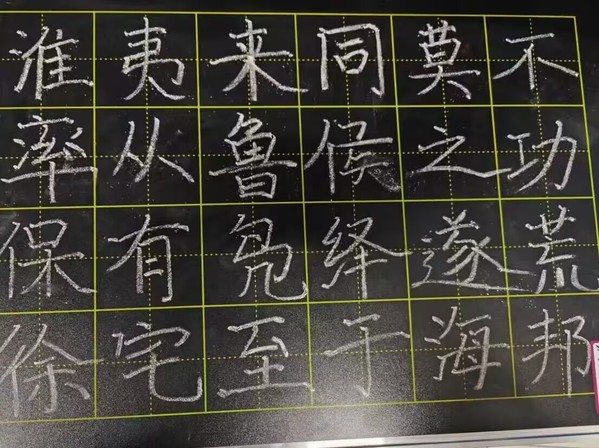 淮夷来同莫不
率从鲁侯之功
保有凫绎遂荒
徐宅至于海邦